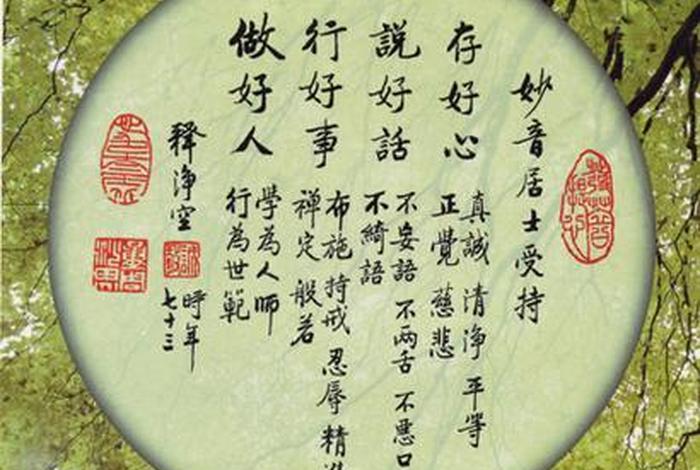 妙音居士受持
存好心
真誠 清淨 平等
正覺 慈悲
說好話
不妄語 不两舌 不惡口
不綺語
行好事
布施 持戒 忍辱 精
禪定 般若
做好人
學為人師
行為世範
釋淨空
時年
七十三